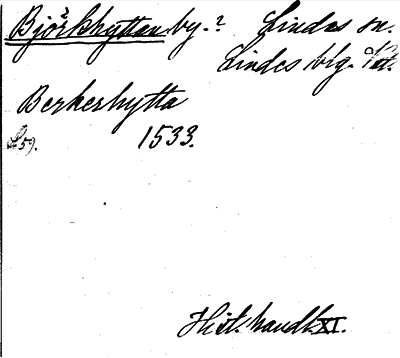 Björkhyttan by.? Lindes sn.
Lindes blg. Vstl.
Berkerhytta
L. 59. 1533.
Hist. handl. XI.